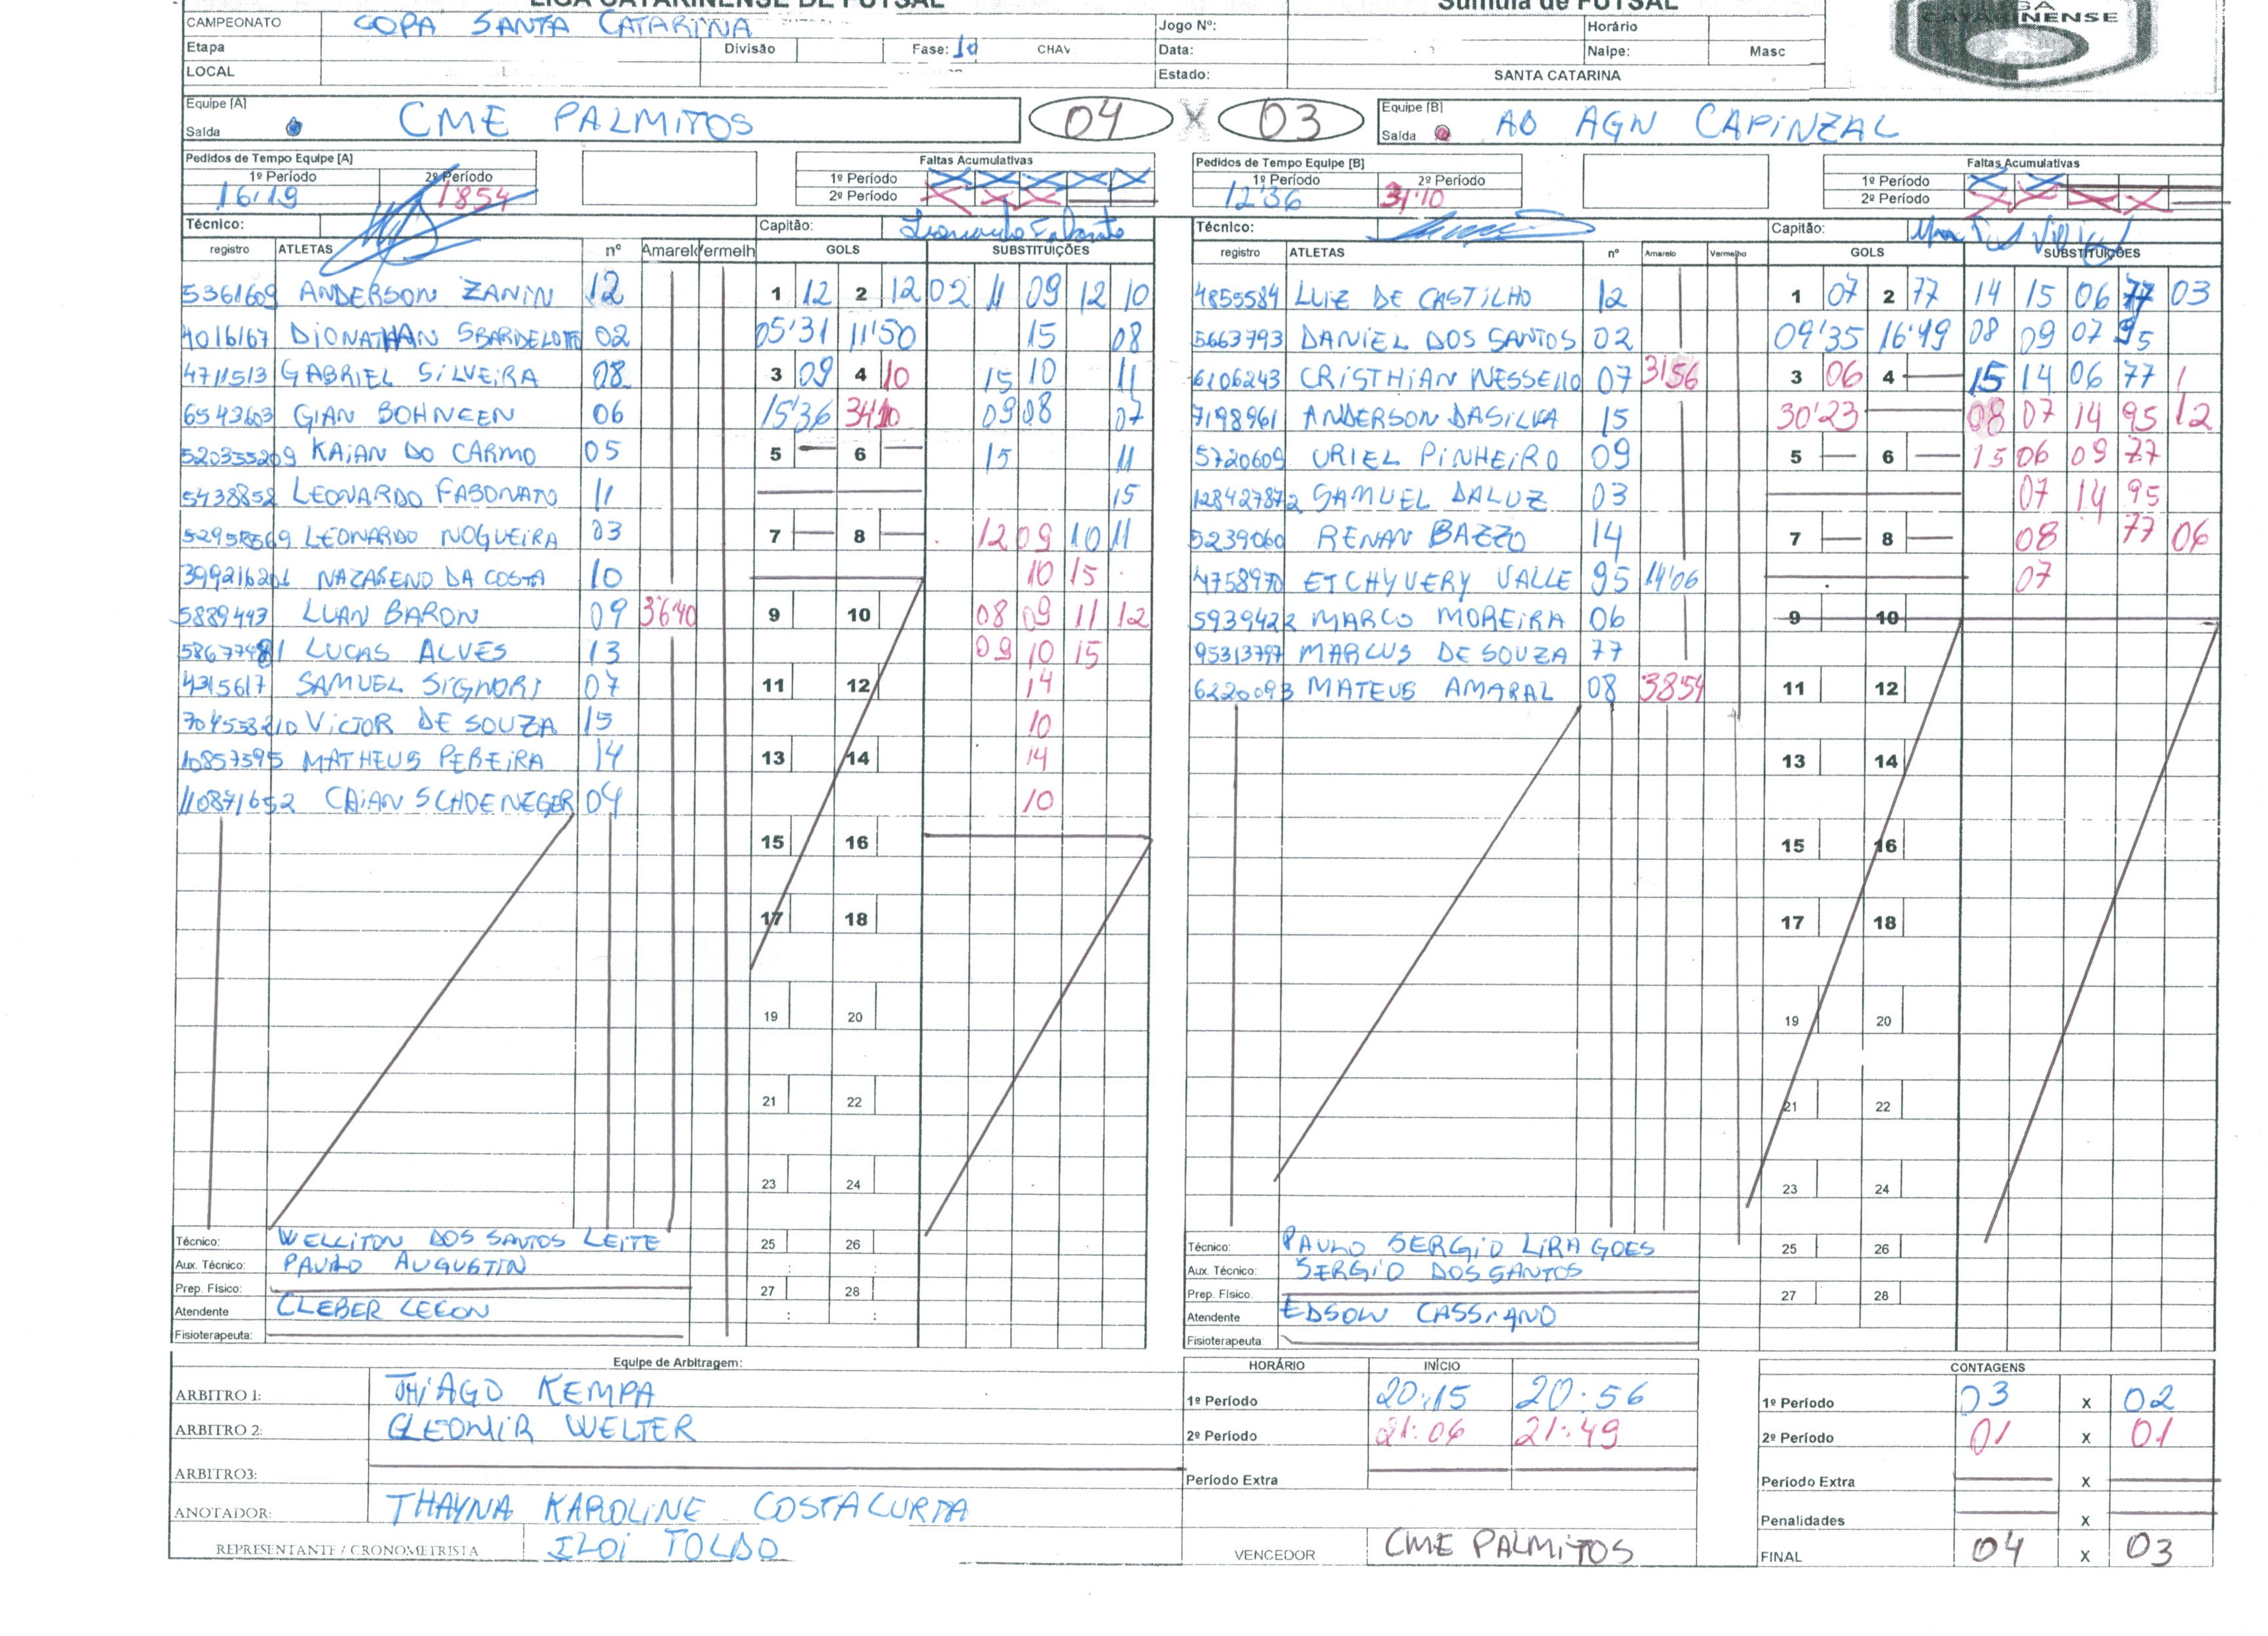 LIGA CATARINENSE DE FUTSAL Súmula de FUTSAL
CAMPEONATO COPA SANTA CATARINA Jogo Nº: Horário CATARINENSE
Etapa Divisão Fase: 1ª CHAV Data: Naipe: Masc
LOCAL Estado: SANTA CATARINA
Equipe [A] CME PALMITOS 04 X 03 Equipe [B] AO AGN CAPINZAL
Saída Saída
Pedidos de Tempo Equipe [A] Faltas Acumulativas Pedidos de Tempo Equipe [B] Faltas Acumulativas
1º Período 2º Período 1º Período 1º Período 2º Período 1º Período
16:19 1854 2º Período 12'36 31'10 2º Período
Técnico: Capitão: Técnico: Capitão:
registro ATLETAS nº Amarelo Vermelh GOLS SUBSTITUIÇÕES registro ATLETAS nº Amarelo Vermelho GOLS SUBSTITUIÇÕES
5361609 ANDERSON ZANIN 12 1 12 2 12 02 11 09 12 10 4855584 LUIZ DE CASTILHO 12 1 07 2 77 14 15 06 77 03
4016167 DIONATHAN SBARDELOTTO 02 05'31 11'50 15 08 5663793 DANIEL DOS SANTOS 02 09'35 16'49 08 09 07 95
4711513 GABRIEL SILVEIRA 08 3 09 4 10 15 10 11 6106243 CRISTHIAN WESSELLO 07 3156 3 06 4 15 14 06 77 1
6543603 GIAN BOHNEEN 06 15'36 3410 09 08 07 7198961 ANDERSON DASILVA 15 30'23 08 07 14 95 12
520355209 KAIAN DO CARMO 05 5 6 15 11 5720609 URIEL PINHEIRO 09 5 6 15 06 09 77
5438852 LEONARDO FABONATO 11 15 128427872 SAMUEL DALUZ 03 07 14 95
LEONARDO NOGUEIRA 03 7 8 12 09 10 11 5239060 RENAN BAZZO 14 7 8 08 77 06
NAZARENO DA COSTA 10 10 15 4758970 ETCHYVERY VALLE 95 14'06 07
5889443 LUAN BARON 09 3640 9 10 08 09 11 12 5939422 MARCO MOREIRA 06 9 10
LUCAS ALVES 13 09 10 15 95313797 MARCUS DE SOUZA 77
4315617 SAMUEL SIGNORI 07 11 12 14 6220093 MATEUS AMARAL 08 3854 11 12
704553210 VICTOR DE SOUZA 15 10
10857395 MATHEUS PEREIRA 14 13 14 14 13 14
110871652 CAIAN SCHOENEGER 04 10
15 16 15 16
17 18 17 18
19 20 19 20
21 22 21 22
23 24 23 24
Técnico: WELLITON DOS SANTOS LEITE 25 26 Técnico: PAULO SERGIO LIRA GOES 25 26
Aux. Técnico: PAULO AUGUSTIN Aux. Técnico: SERGIO DOS SANTOS
Prep. Físico: 27 28 Prep. Físico: 27 28
Atendente CLEBER LECON : : Atendente EDSON CASSIANO
Fisioterapeuta: Fisioterapeuta:
Equipe de Arbitragem: HORÁRIO INÍCIO CONTAGENS
ARBITRO 1: THIAGO KEMPA 1º Período 20:15 20:56 1º Período 03 X 02
ARBITRO 2: GLEOMIR WELTER 2º Período 21:06 21:49 2º Período 01 X 01
ARBITRO3: Período Extra Período Extra X
ANOTADOR: THAYNA KAROLINE COSTACURTA Penalidades X
REPRESENTANTE / CRONOMETRISTA ILOI TOLDO VENCEDOR CME PALMITOS FINAL 04 X 03